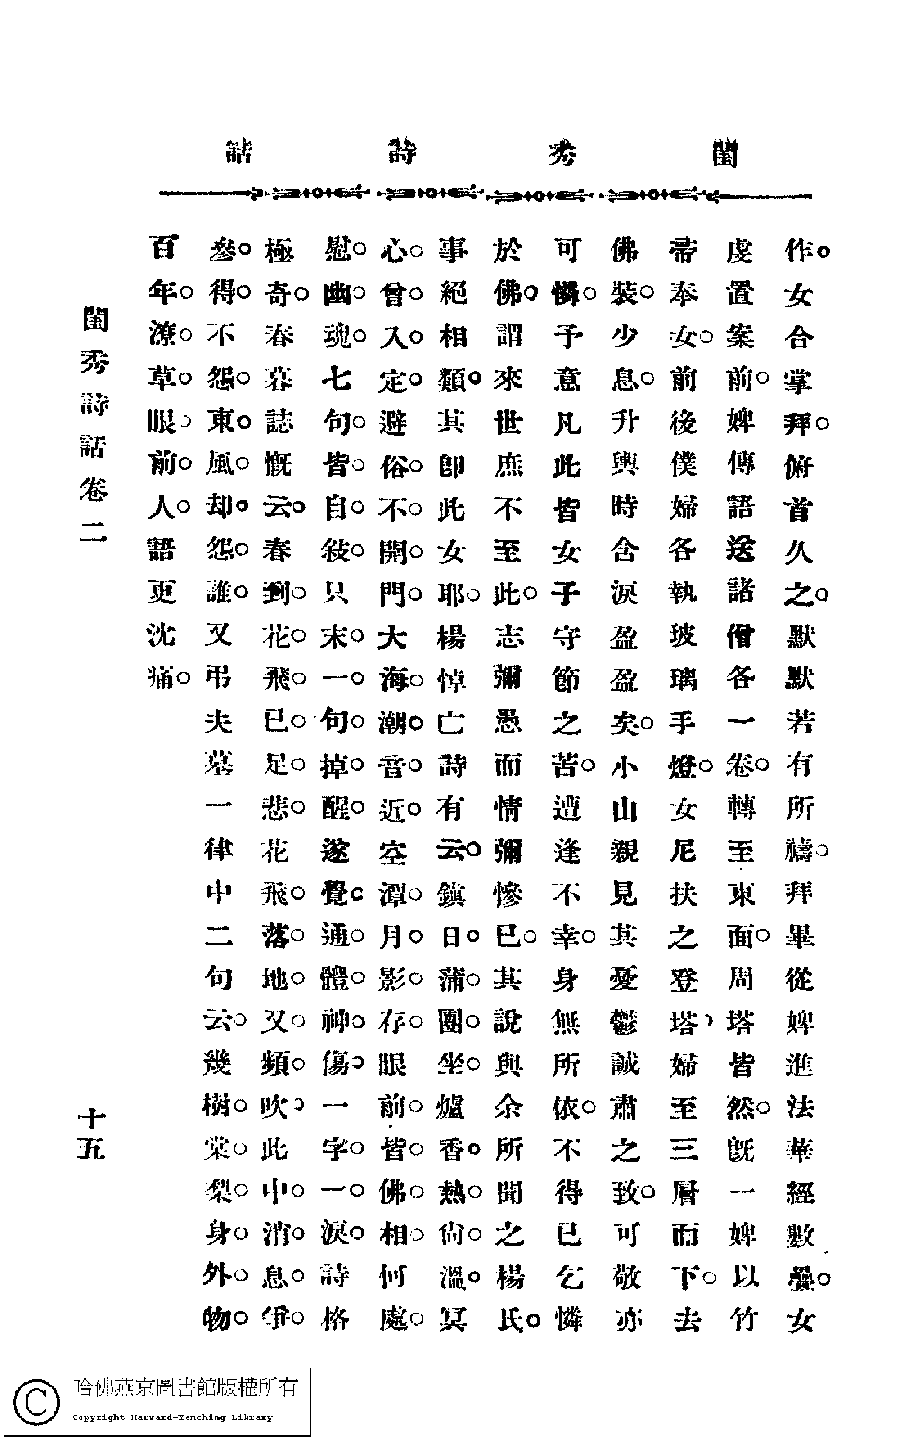 閨秀詩話
作。女合掌拜。俯首久之。默默若有所禱。拜畢從婢進法華經數疊。女
虔置案前。婢傳語送諸僧各一卷。轉至東面。周塔皆然。旣一婢以竹
帚奉女。前後僕婦各執玻璃手燈。女尼扶之登塔、婦至三層而下。去
佛裝。少息。升輿時含淚盈盈矣。小山親見其憂鬱誠肅之致。可敬亦
可憐。予意凡此皆女子守節之苦。遭逢不幸。身無所依。不得已乞憐
於佛。謂來世庶不至此。志彌愚而情彌慘已。其說與余所聞之楊氏。
事絕相類。其卽此女耶。楊悼亡詩有云。鎭日。蒲。團。坐。爐香。熱。尙。溫。冥
心。曾。入。定。避俗。不。開。門。大海。潮。音。近。空潭。月。影。存。眼前。皆。佛。相。何處。
慰。幽。魂。七句。皆。自。敍。只末。一。句。掉。醒。遂覺。通。體。神。傷。一字。一。淚。詩格
極奇。春暮誌慨云。春到。花。飛。已。足。悲。花飛。落。地。又。頻。吹。此中。消。息。伊。
參。得。不怨。東。風。却。怨。誰。又弔夫墓一律中二句云。幾樹。棠。梨。身。外。物。
百年。潦。草。眼。前。人。語更沈痛。
閨秀詩話卷二
十五
哈佛燕京圖書館版權所有
Copyright Harvard-Yenching Library